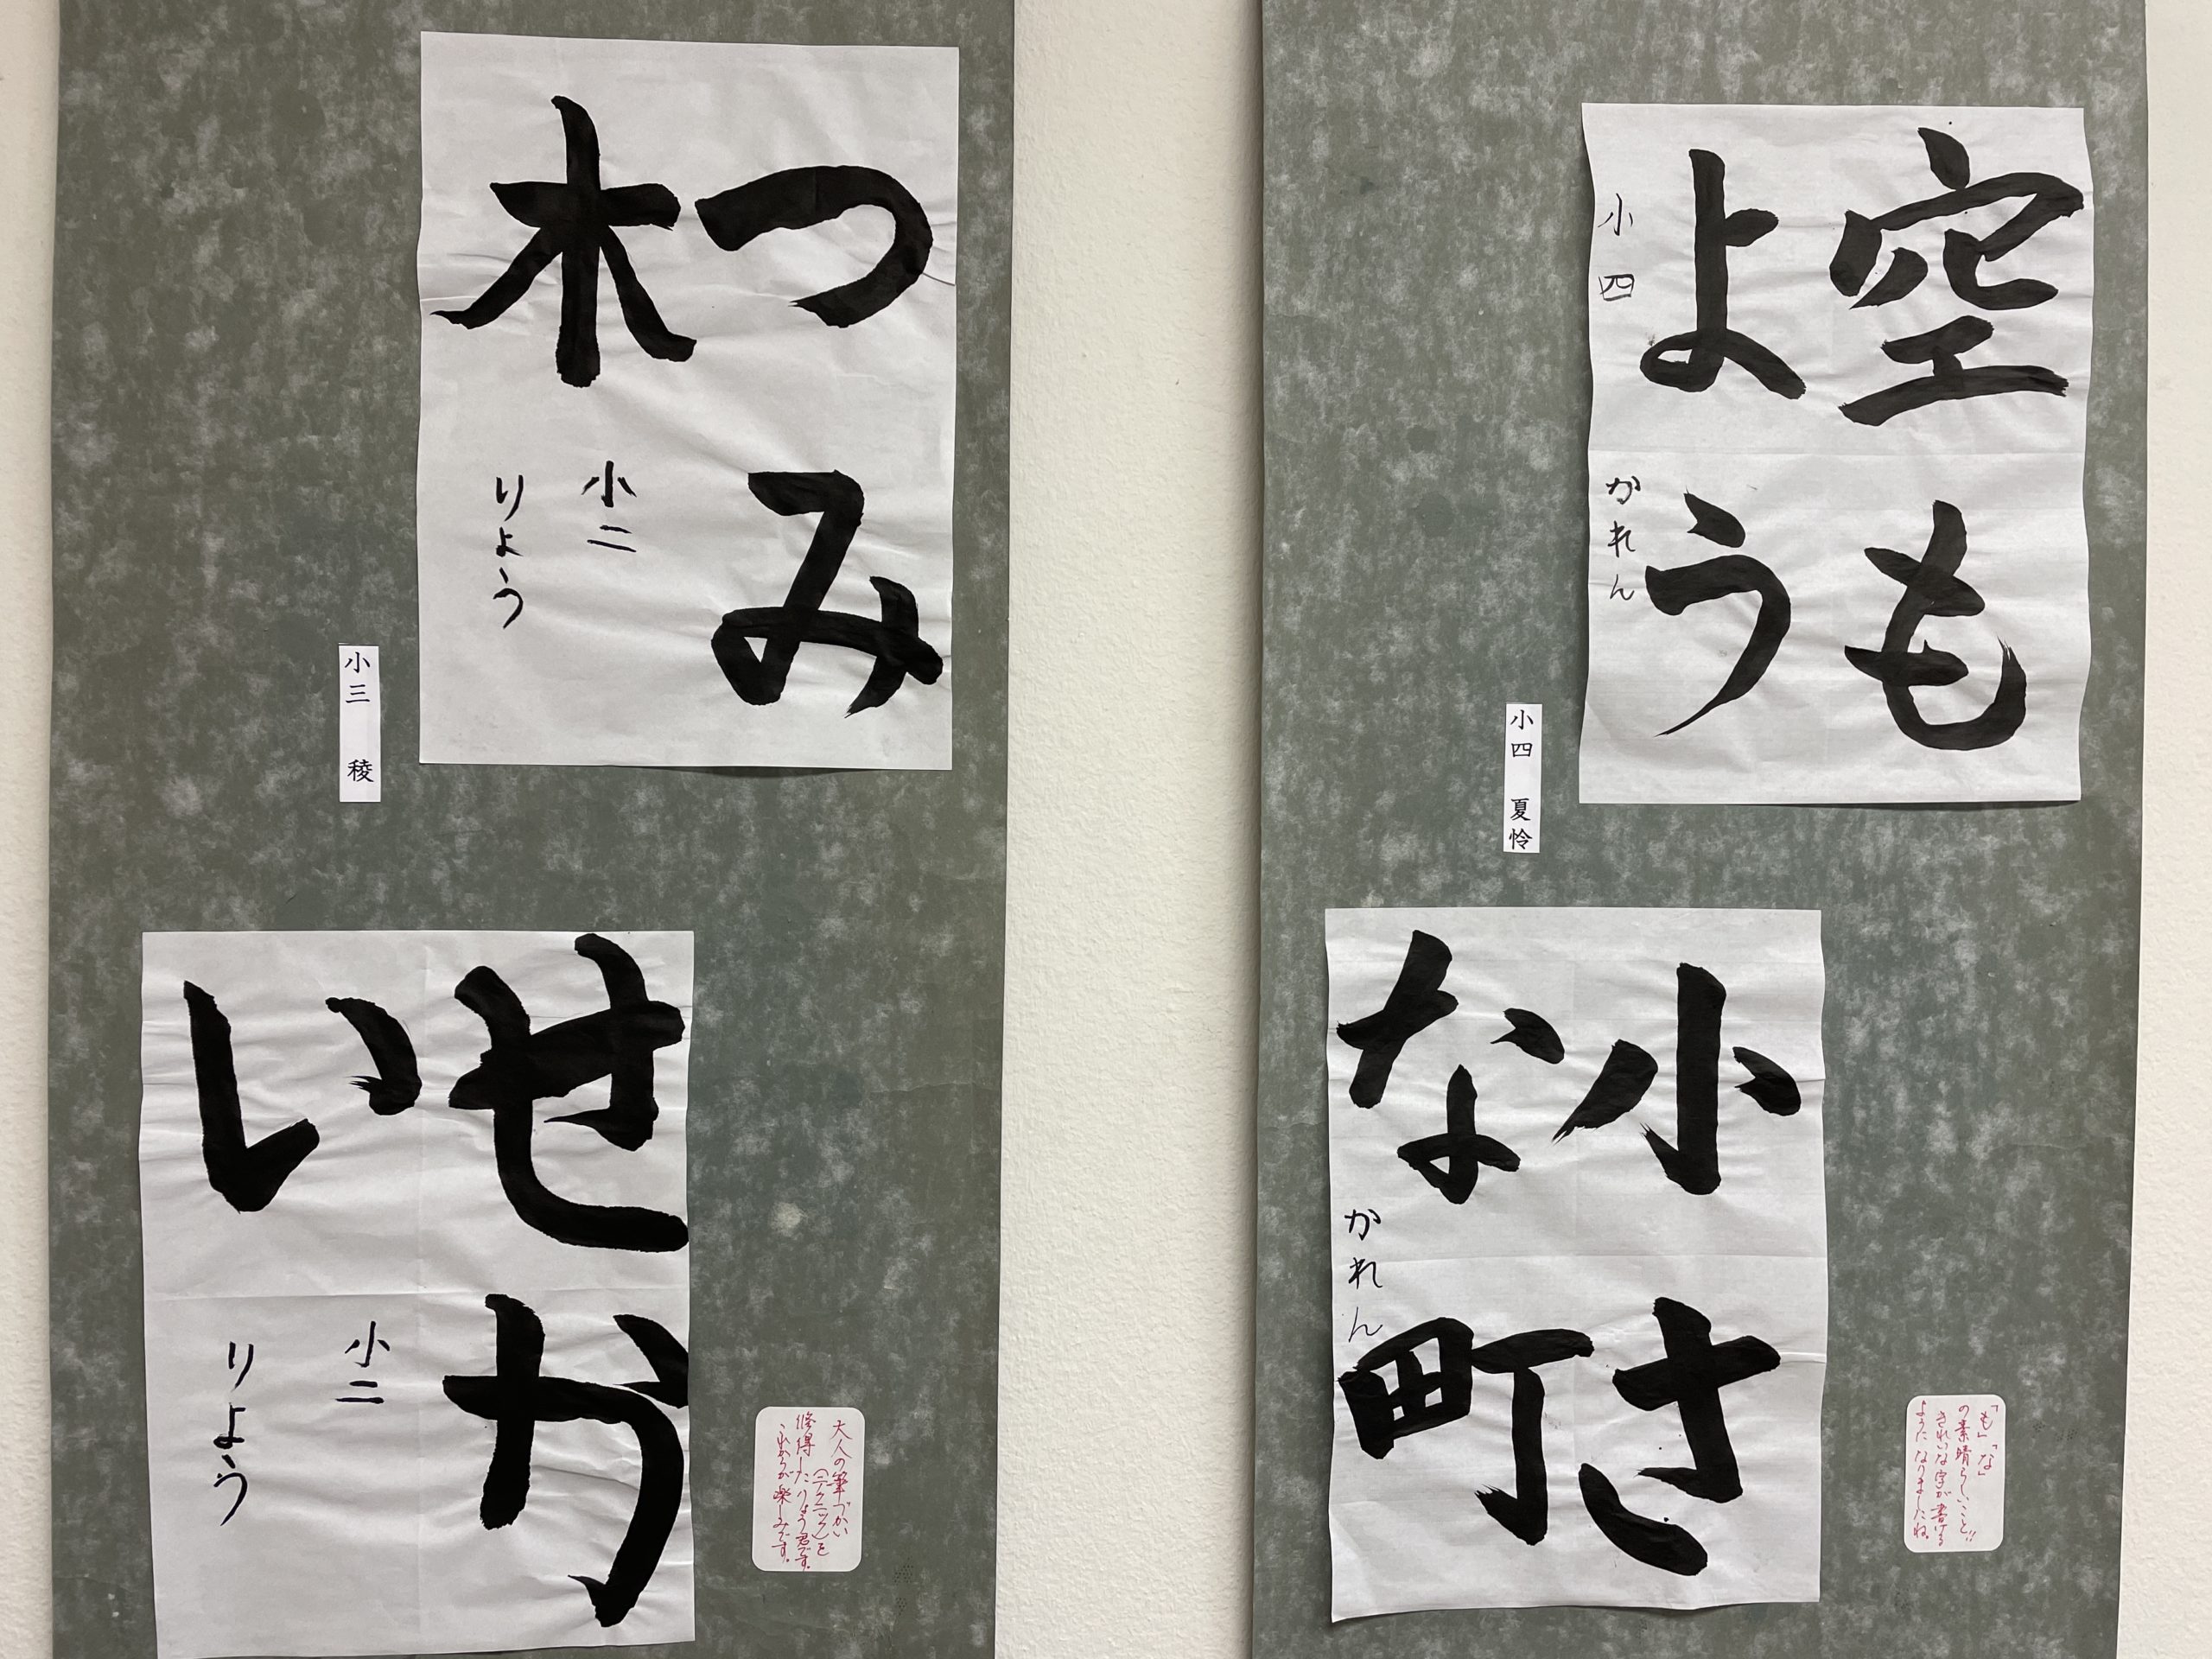 空も
よう
小四 かれん
小四 夏怜
小さ
な町
かれん
「も」「な」
の素晴らしいこと!!
きれいな字が書ける
ようになりましたね。
つみ
木
小二
りょう
小三 稜
せか
い
小二
りょう
大人の筆づかい
(テクニック)を
修得したりょう君です。
これからが楽しみです。